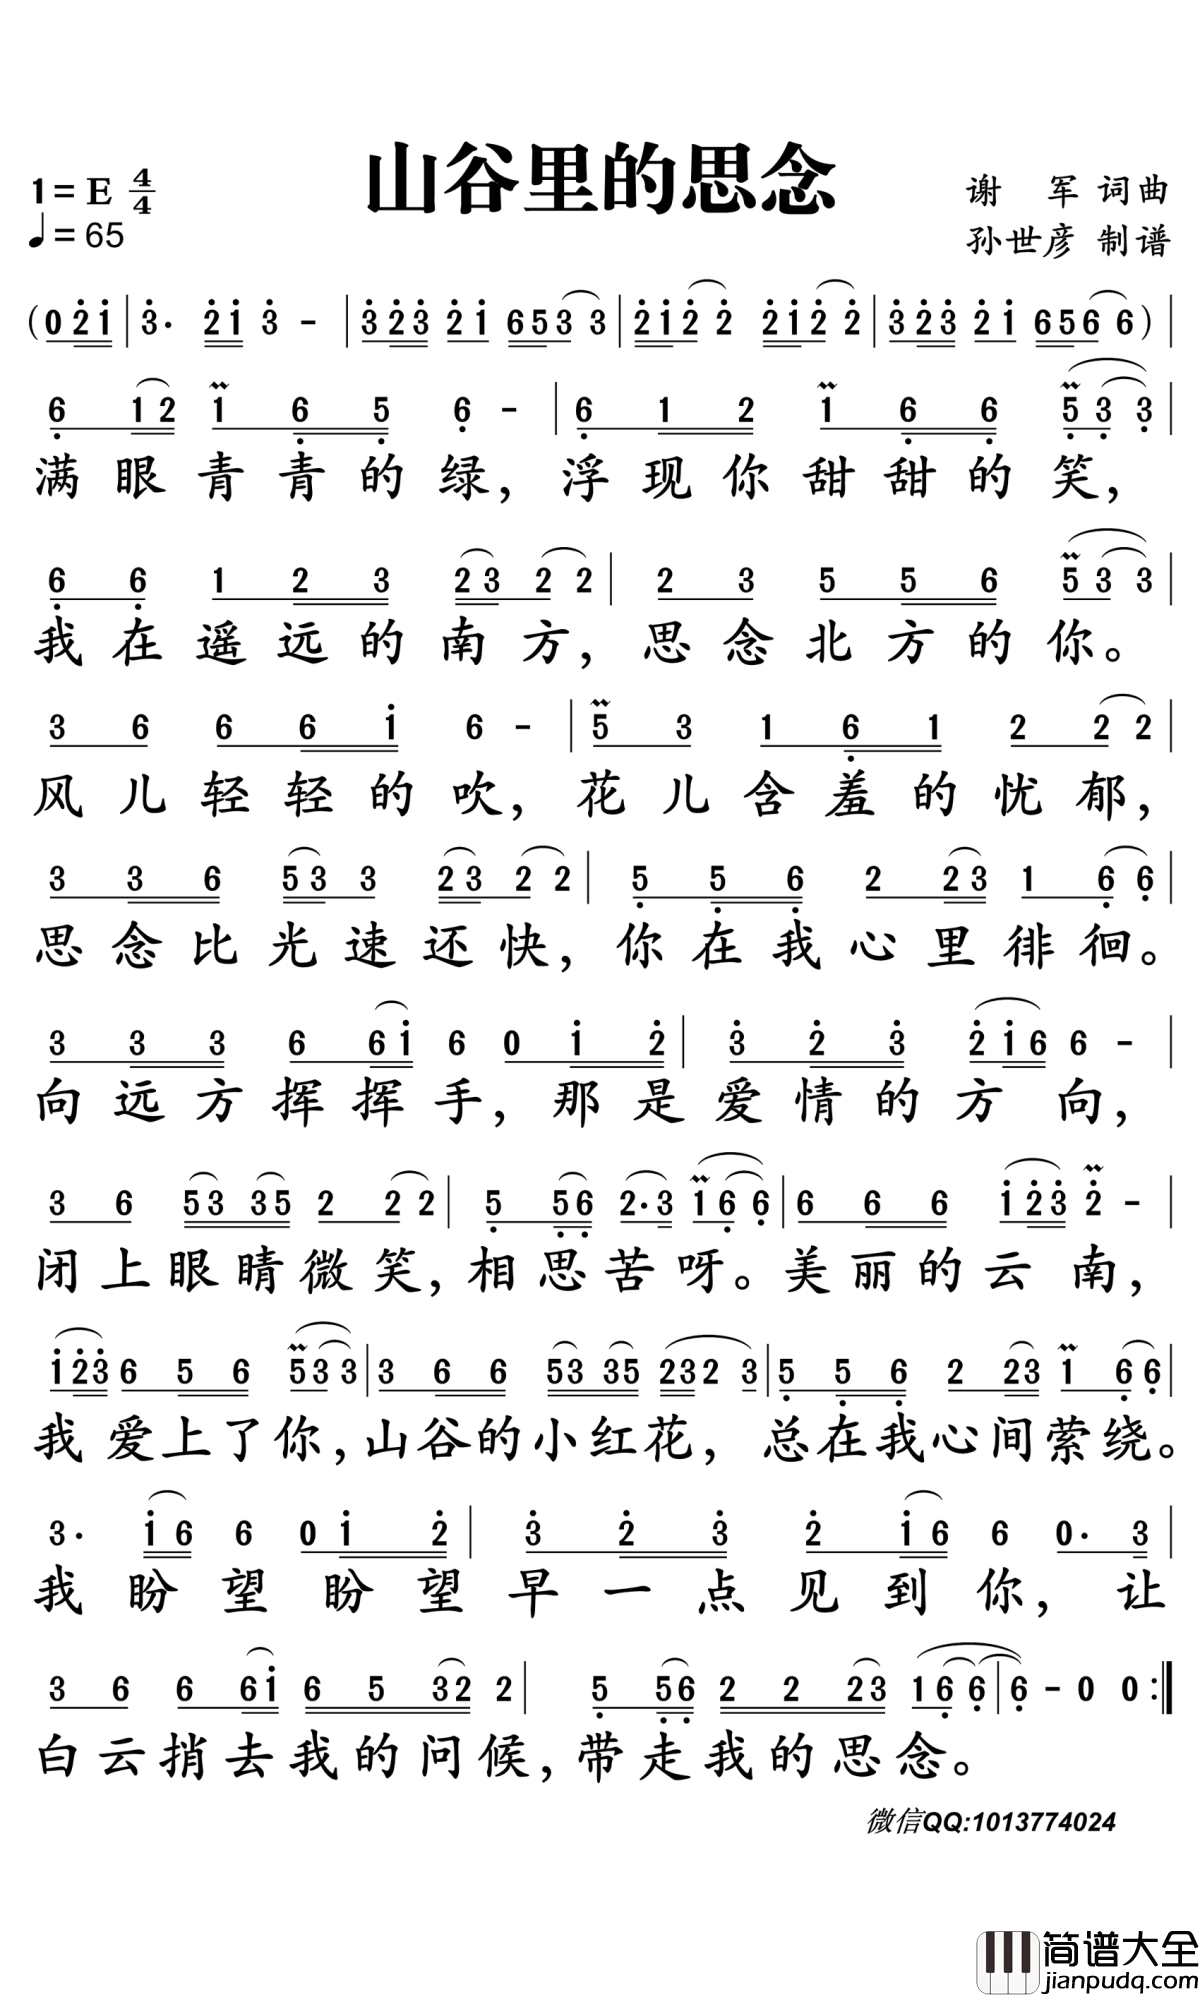 山谷里的思念
1=E 4/4
♩=65
谢 军 词曲
孙世彦 制谱
(0 2̇ 1̇ | 3̇· 2̇ 1̇ 3̇ - | 3̇ 2̇ 3̇ 2̇ 1̇ 6 5 3 3 | 2̇ 1̇ 2̇ 2̇ 2̇ 1̇ 2̇ 2̇ | 3̇ 2̇ 3̇ 2̇ 1̇ 6 5 6 6) |
6̣ 1 2 1 6̣ 5̣ 6̣ - | 6̣ 1 2 1 6̣ 6̣ 5̣ 3̣ 3̣ |
满眼青青的绿，浮现你甜甜的笑，
6̣ 6̣ 1 2 3 2 3 2 2 | 2 3 5 5 6 5 3 3 |
我在遥远的南方，思念北方的你。
3 6 6 6 1̇ 6 - | 5 3 1 6̣ 1 2 2 2 |
风儿轻轻的吹，花儿含羞的忧郁，
3 3 6 5 3 3 2 3 2 2 | 5̣ 5̣ 6̣ 2 2 3 1 6̣ 6̣ |
思念比光速还快，你在我心里徘徊。
3 3 3 6 6 1̇ 6 0 1̇ 2̇ | 3̇ 2̇ 3̇ 2̇ 1̇ 6 6 - |
向远方挥挥手，那是爱情的方向，
3 6 5 3 3 5 2 2 2 | 5̣ 5̣ 6̣ 2· 3 1 6̣ 6̣ | 6 6 6 1̇ 2̇ 3̇ 2̇ - |
闭上眼睛微笑，相思苦呀。美丽的云南，
1̇ 2̇ 3̇ 6 5 6 5 3 3 | 3 6 6 5 3 3 5 2 3 2 3 | 5̣ 5̣ 6̣ 2 2 3 1 6̣ 6̣ |
我爱上了你，山谷的小红花，总在我心间萦绕。
3· 1̇ 6 6 0 1̇ 2̇ | 3̇ 2̇ 3̇ 2̇ 1̇ 6 6 0· 3 |
我盼望盼望早一点见到你，让
3 6 6 6 1̇ 6 5 3 2 2 | 5̣ 5̣ 6̣ 2 2 2 3 1 6̣ 6̣ | 6̣ - 0 0 :‖
白云捎去我的问候，带走我的思念。
微信QQ:1013774024
简谱大全
jianpudq.com